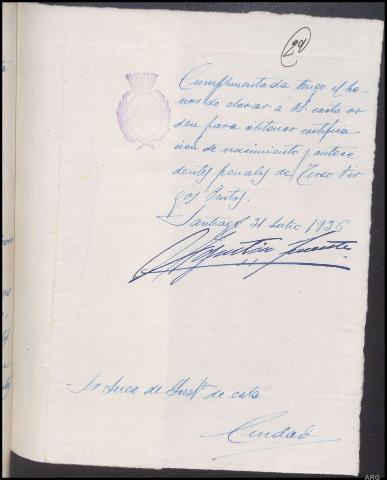 29
Cumplimentada tengo el ho-
nor de elevar á V. carta or
den para obtener certifica
cion de nacimiento y antece
dentes penales de
Santiago 31 Julio 1936
Agustin Fuentes
Sr Juez de Inst^on de esta
Ciudad
ARG